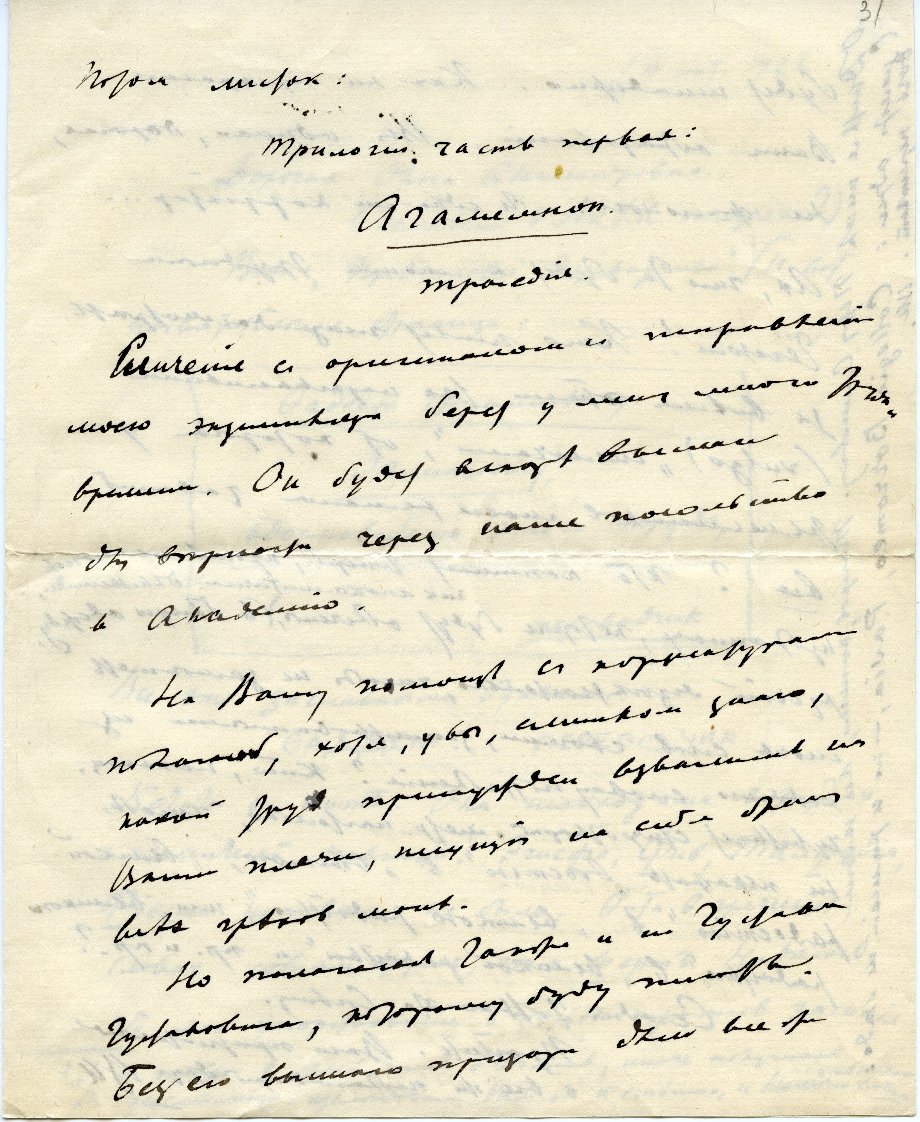 31
Потом листок:
Трилогія. часть первая:
Агамемнон.
трагедія.
Сличеніе с оригиналом и исправленій
моего экземпляра берет у меня много
времени. Он будет вскорѣ выслан
для вѣрности через наше посольство
в Академію.
На Вашу помощь с корректурами
хотя, увы, слишком знаю,
какой труд взвалить на
Ваши плечи, на себя бремя
всѣх грѣхов моих.
Но полагался также и на Густава
Густавовича, которому буду писать.
Без его высшаго призора дѣло все же